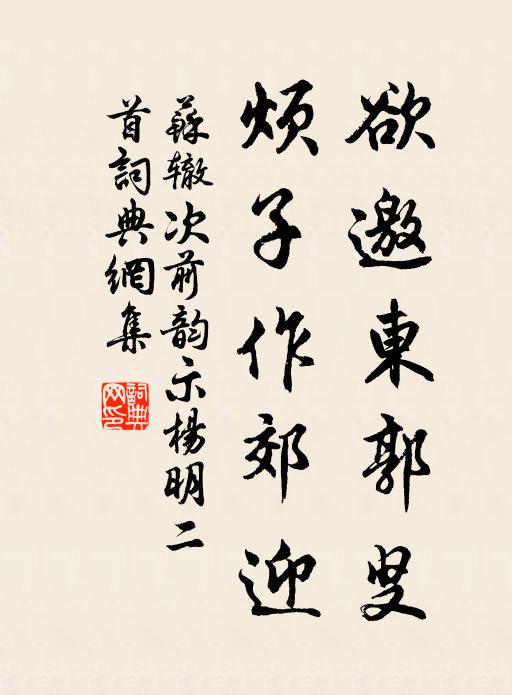 欲邀東郭叟
煩子作郊迎
蘇轍次前韵示楊明二
首詞典網集
詞典
网印